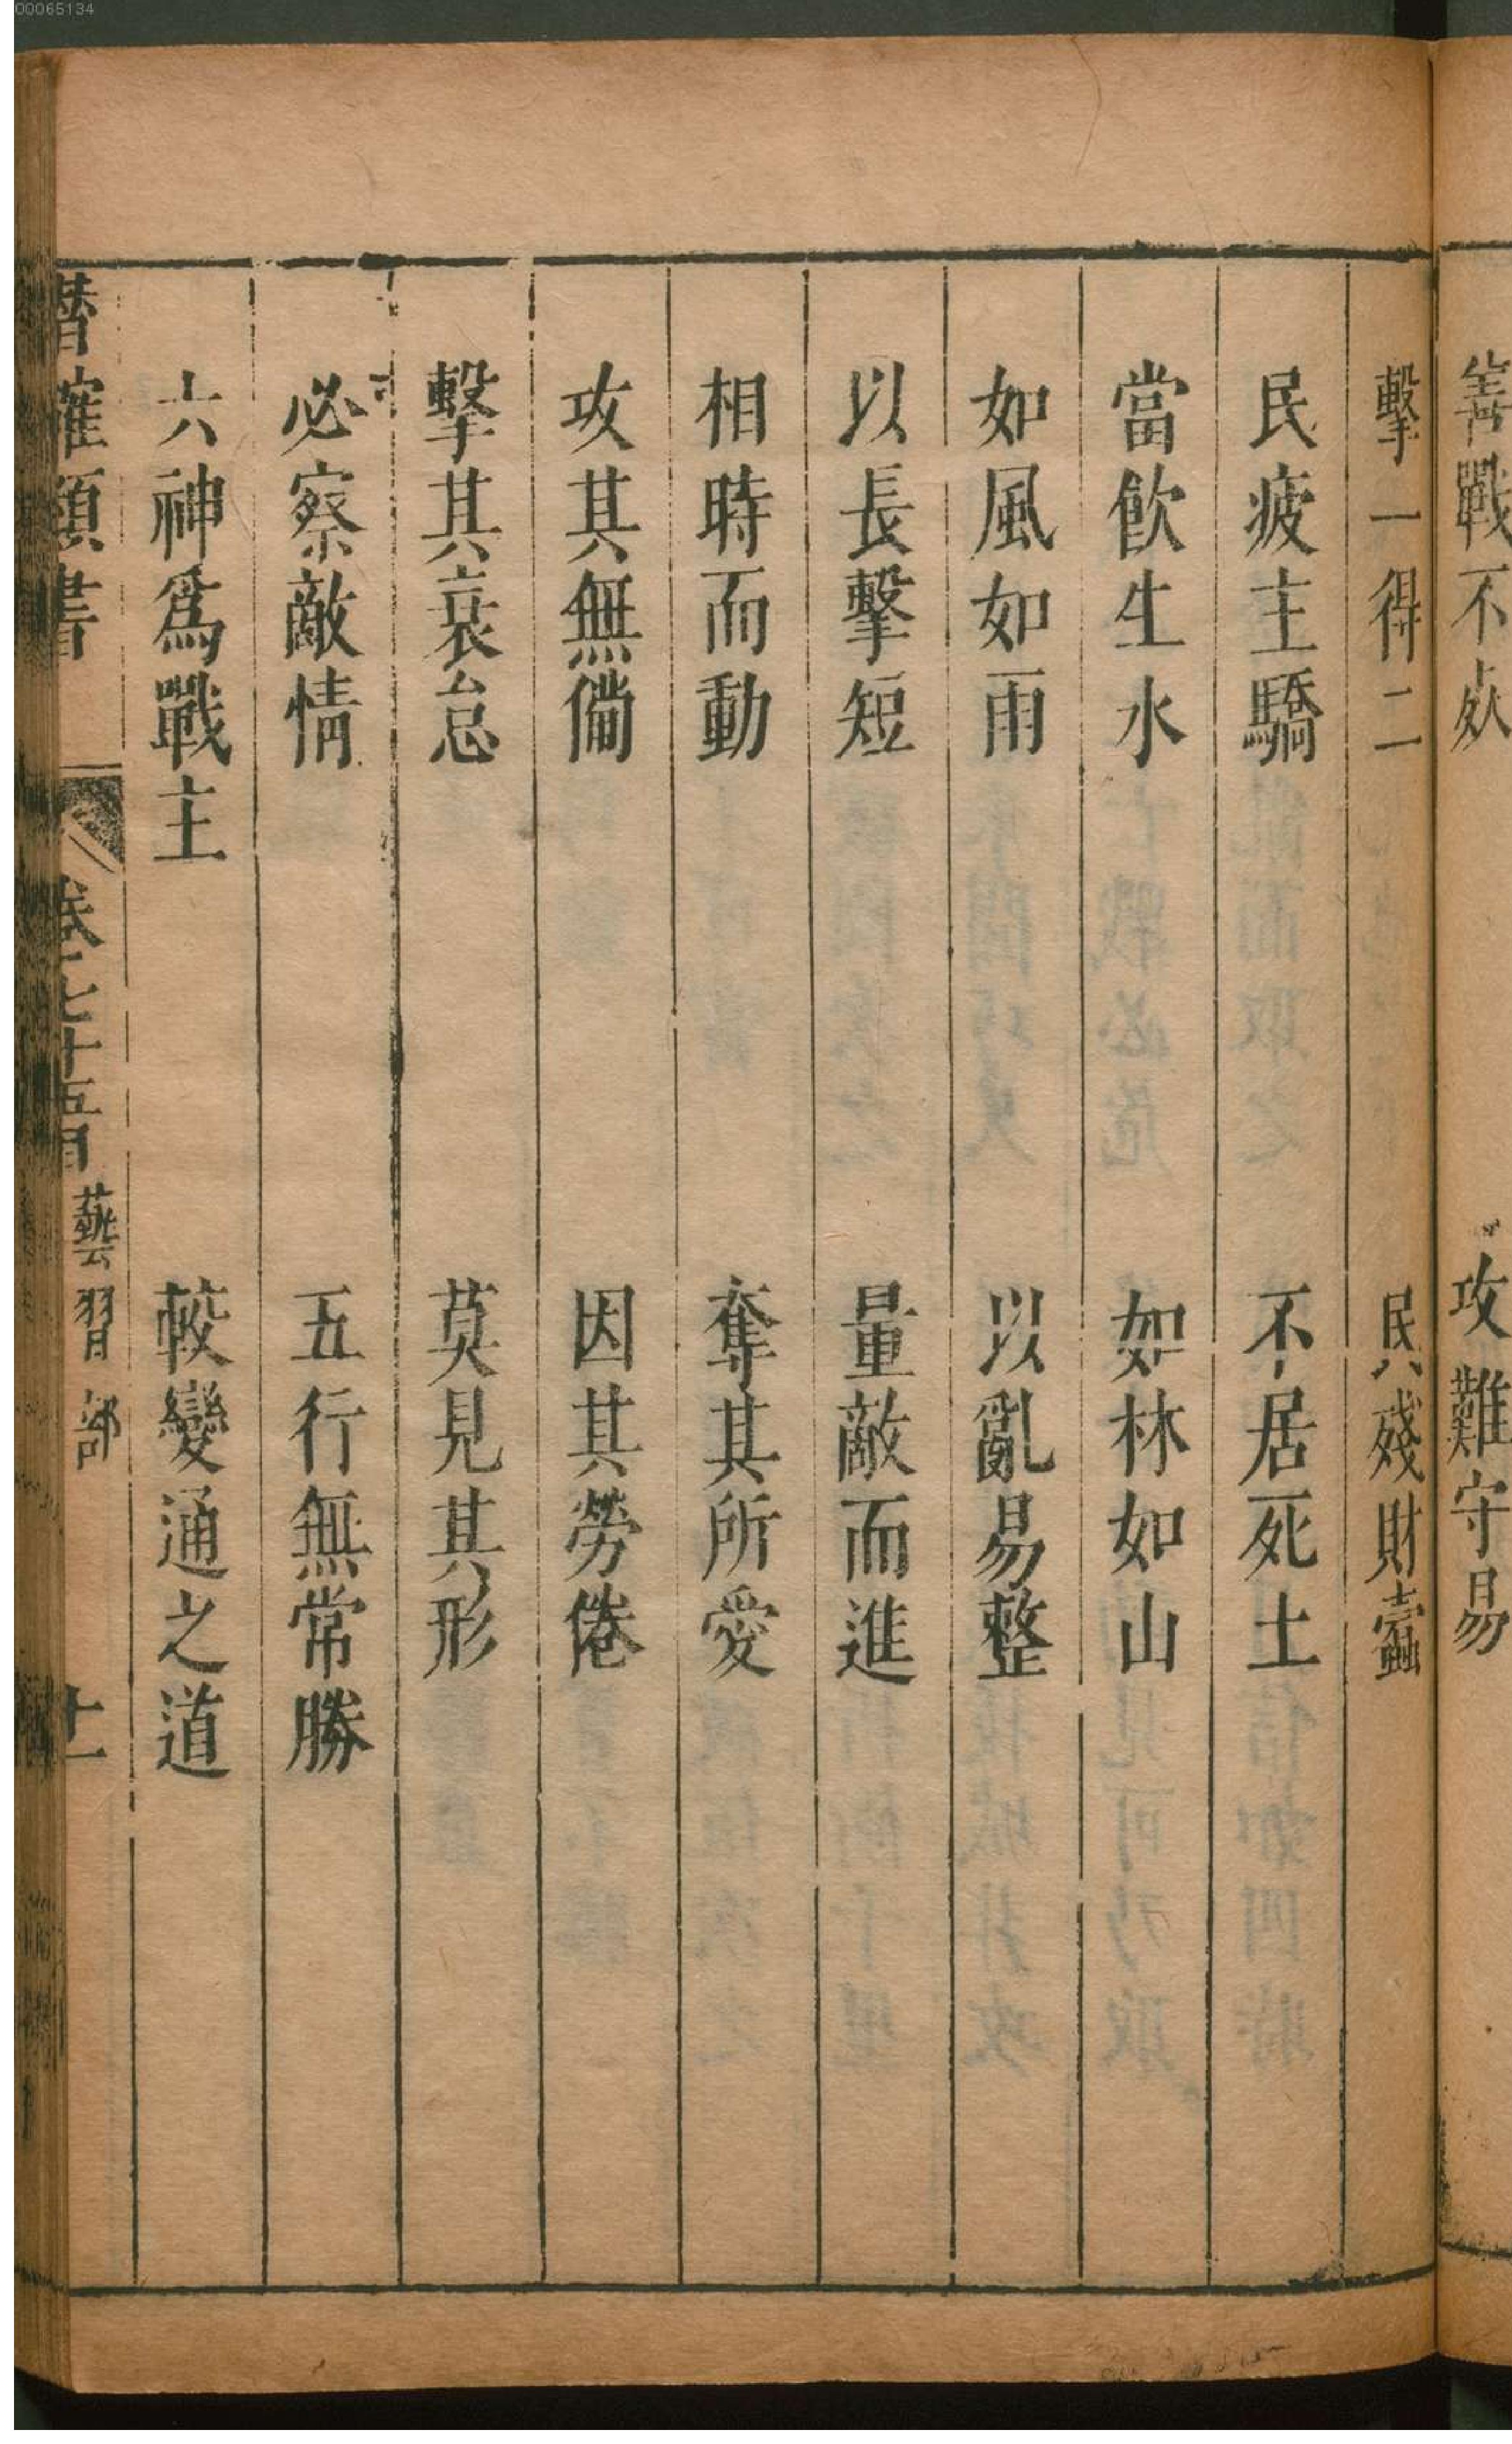 00065134
善戰不　攻難守易
擊一得二　殘財蠹
民疲主驕　不居死土
當飲生水　如林如山
如風如雨　以亂易整
以長擊短　量敵而進
相時而動　奪其所愛
攻其無備　因其勞倦
擊其衰怠　莫見其形
必察敵情　五行無常勝
六神爲戰主　較變通之道
潛確類書　卷之七十五　藝習部　十一